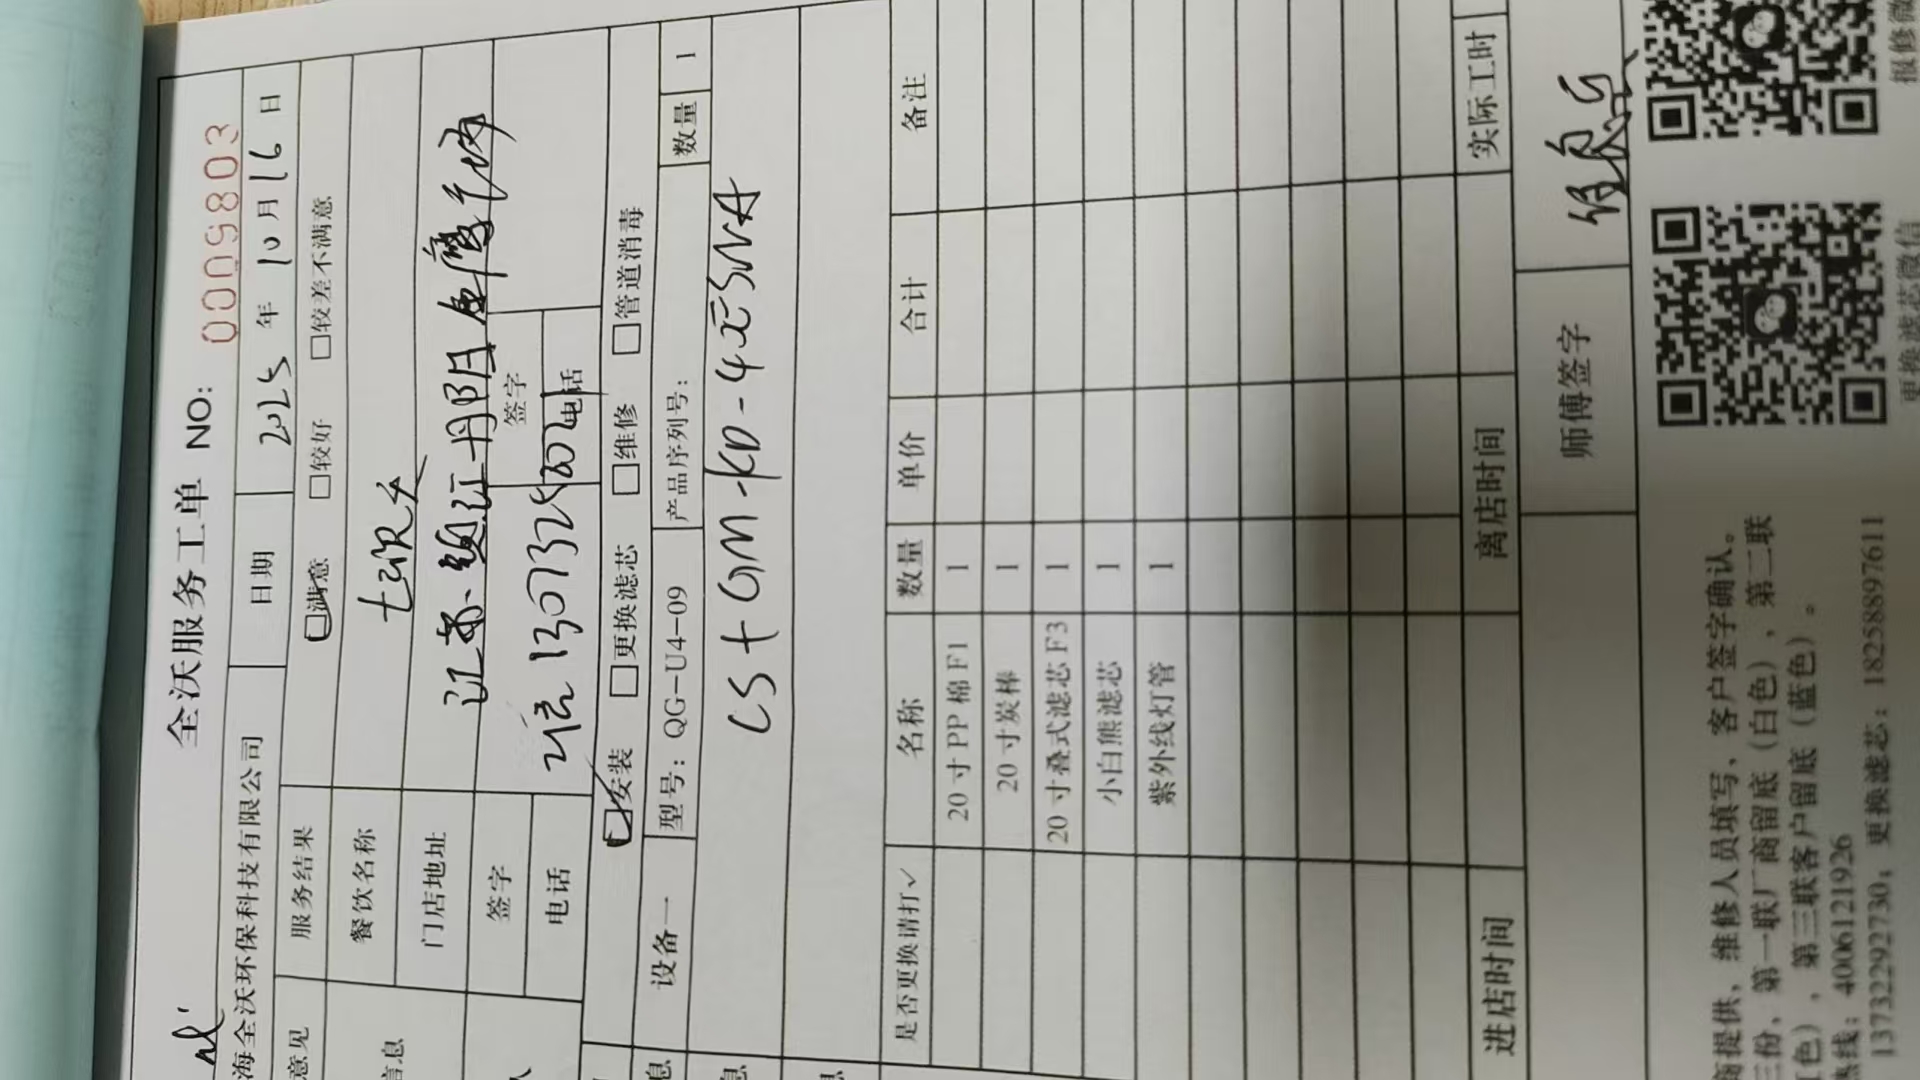 全沃服务工单 NO: 0009803
海全沃环保科技有限公司 日期 2025 年 10 月 16 日
意见 服务结果 满意 □较好 □较差不满意
信息 餐饮名称
门店地址 江苏 镇江 丹阳
签字 签字
电话 电话
安装 □更换滤芯 □维修 □管道消毒
设备一 型号: QG-U4-09 产品序列号: 数量 1
是否更换请打✓ 名称 数量 单价 合计 备注
20寸PP棉F1 1
20寸炭棒 1
20寸叠式滤芯F3 1
小白熊滤芯 1
紫外线灯管 1
进店时间 离店时间 实际工时
师傅签字
商提供, 维修人员填写, 客户签字确认。
三份, 第一联厂商留底(白色), 第二联
色), 第三联客户留底(蓝色)。
热线: 4006121926
13732292730; 更换滤芯: 18258897611
更换滤芯微信 报修微